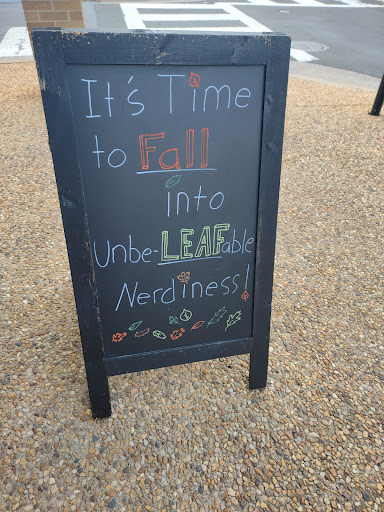 It's Time
to Fall
into
Unbe-LEAFable
Nerdiness!